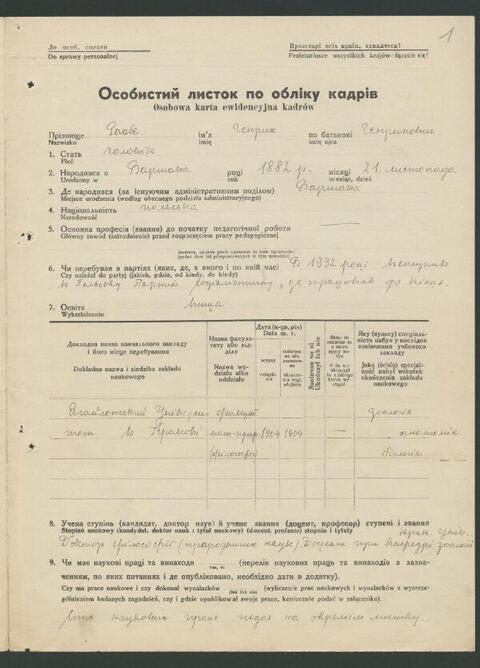 1
До особ. справи
Do sprawy personalnej
Пролетарі всіх країн, єднайтеся!
Proletariusze wszystkich krajów łączcie się!
Особистий листок по обліку кадрів
Osobowa karta ewidencyjna kadrów
Прізвище Раабе ім'я Генрик по батькові Генрикович
Nazwisko imię imię ojca
1. Стать чоловік
Płeć
2. Народився в Варшава році 1882 р. місяці 21. листопада
Urodzony w roku miesiąc, dzień
3. Де народився (за існуючим адміністративним поділом) Варшава
Miejsce urodzenia (według obecnego podziału administracyjnego)
4. Національність польська
Narodowość
5. Основна професія (звання) до початку педагогічної роботи
Główny zawód (zatrudnienie) przed rozpoczęciem pracy pedagogicznej
6. Чи перебував в партіях (яких, де, з якого і по який час) В 1932 році вступив
Czy należał do partyj (jakich, gdzie, od kiedy, do kiedy)
в Польську Партію соціялістичну, де працював до війни.
7. Освіта вища
Wykształcenie
Докладна назва навчального закладу і його місце перебування
Dokładna nazwa i siedziba zakładu naukowego
Назва факультету або відділу
Nazwa wydziału albo oddziału
Дата (м-ць, рік)
Data m. r.
вступу
Закінчив чи ні
Ukończył lub nie
Яку (вузьку) спеціальність набув у наслідок закінчення учбового закладу
Jaką (ścisłą) specjalność nabył wskutek ukończenia zakładu naukowego
Ягайлонський Універси- філософ. зоологія
тет в Кракові мат.-прир. 1904 1904 анатомія
(філософія) біологія
8. Учена ступінь (кандидат, доктор наук) й учене звання (доцент, професор) ступені і звання
Stopień naukowy (kandydat, doktor nauk i tytuł naukowy) (docent, profesor) stopnie i tytuły
Доктор філософії (природничих наук) Доцент при
9. Чи має наукові праці та винаходи (перелік наукових праць та винаходів з зазначенням, по яких питаннях і де опубліковано, необхідно дати в додатку).
Czy ma prace naukowe i czy dokonał wynalazków (wyliczenie prac naukowych i wynalazków z wyszczególnieniem badanych zagadnień, czy i gdzie opublikował swoje prace, koniecznie podać w załączniku).
Спис наукових праць подаю на окремім листку.